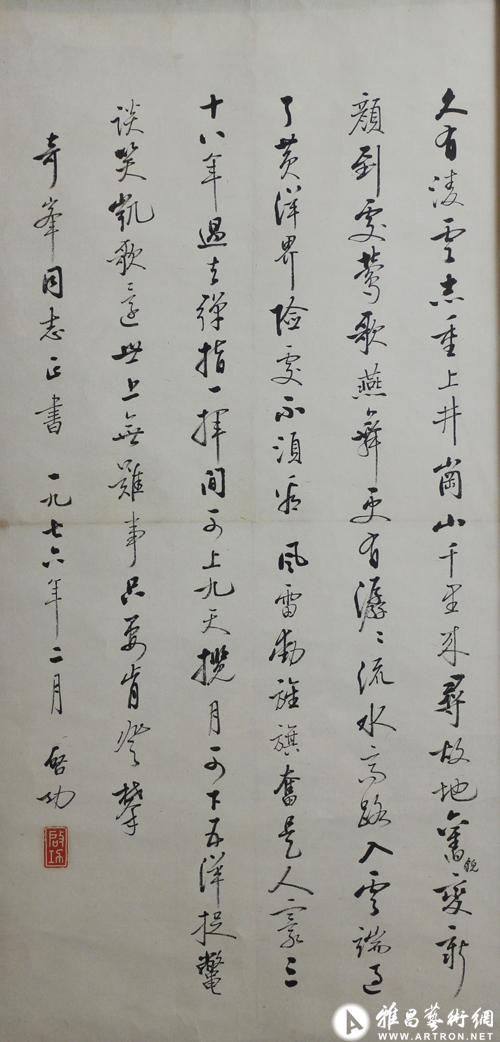 久有淩雲志重上井崗山千里来尋故地舊貌變新
顏到處鶯歌燕舞更有潺〻流水高路入雲端过
了黄洋界險處不須看風雷動旌旗奮是人寰三
十八年過去彈指一揮間可上九天攬月可下五洋捉鱉
談笑凱歌還世上無難事只要肯登攀
奇峯同志正書 一九七六年二月 啓功
啟功
雅昌藝術網
WWW.ARTRON.NET